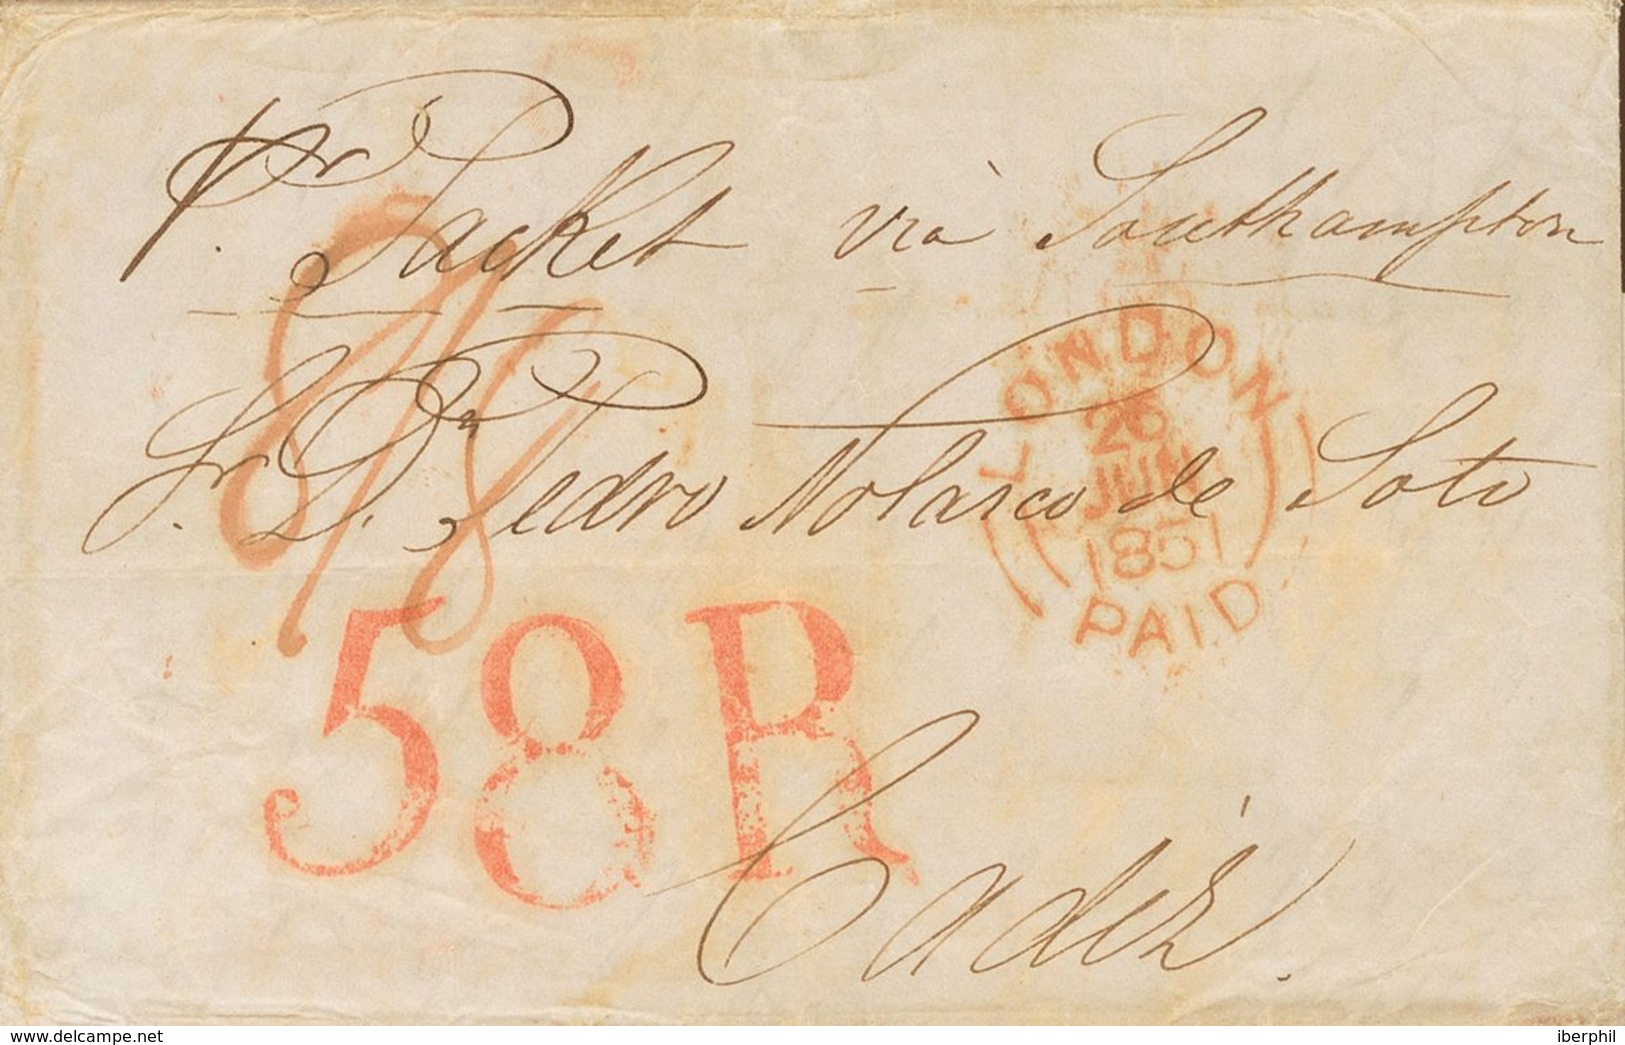 pr. Packet via Southampton
Sr. Dn. Pedro Nolasco de Soto
LONDON
26
JUN
1851
PAID
58 R
Cadiz.
www.delcampe.net
iberphil